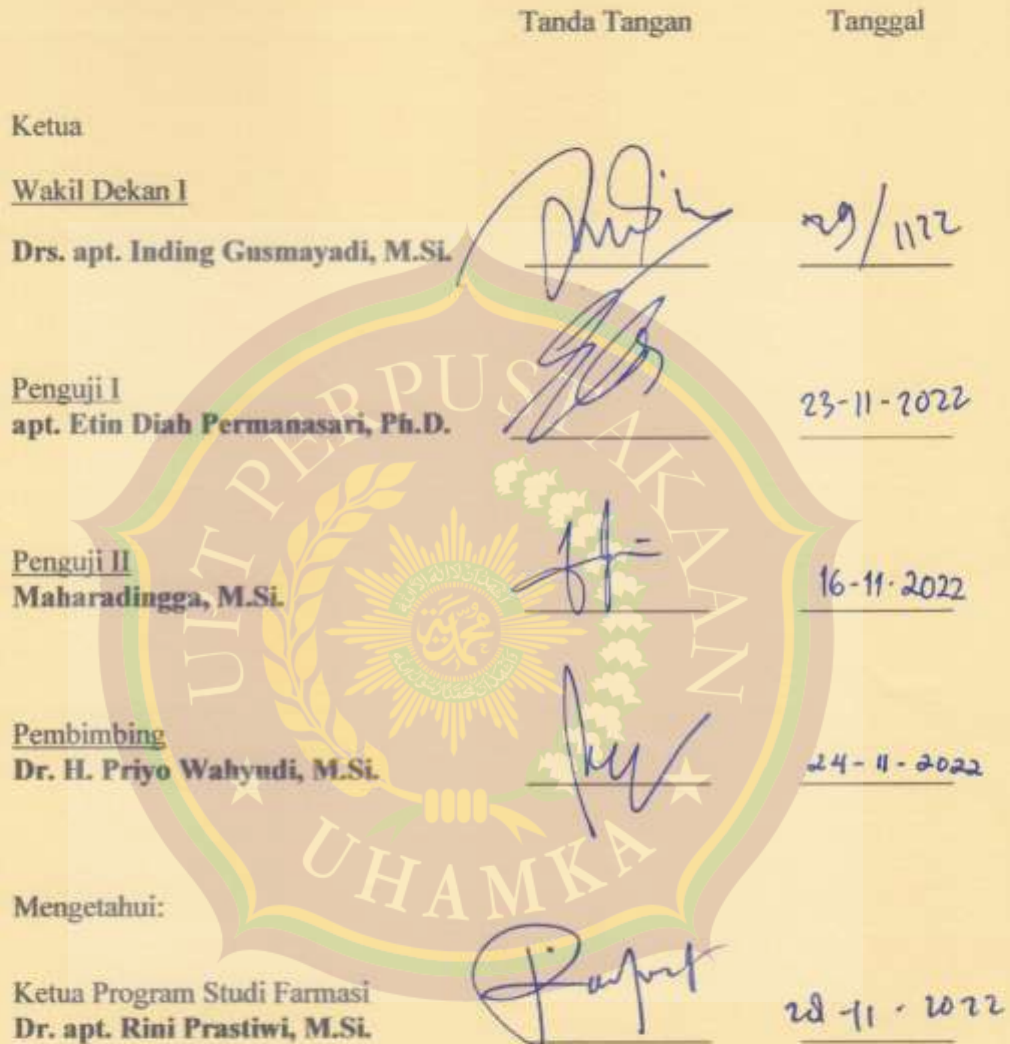 Tanda Tangan Tanggal
Ketua
Wakil Dekan I
Drs. apt. Inding Gusmayadi, M.Si. 29/1122
Penguji I
apt. Etin Diah Permanasari, Ph.D. 23-11-2022
Penguji II
Maharadingga, M.Si. 16-11-2022
Pembimbing
Dr. H. Priyo Wahyudi, M.Si. 24-11-2022
Mengetahui:
Ketua Program Studi Farmasi
Dr. apt. Rini Prastiwi, M.Si. 28-11-2022
UPT PERPUSTAKAAN
UHAMKA